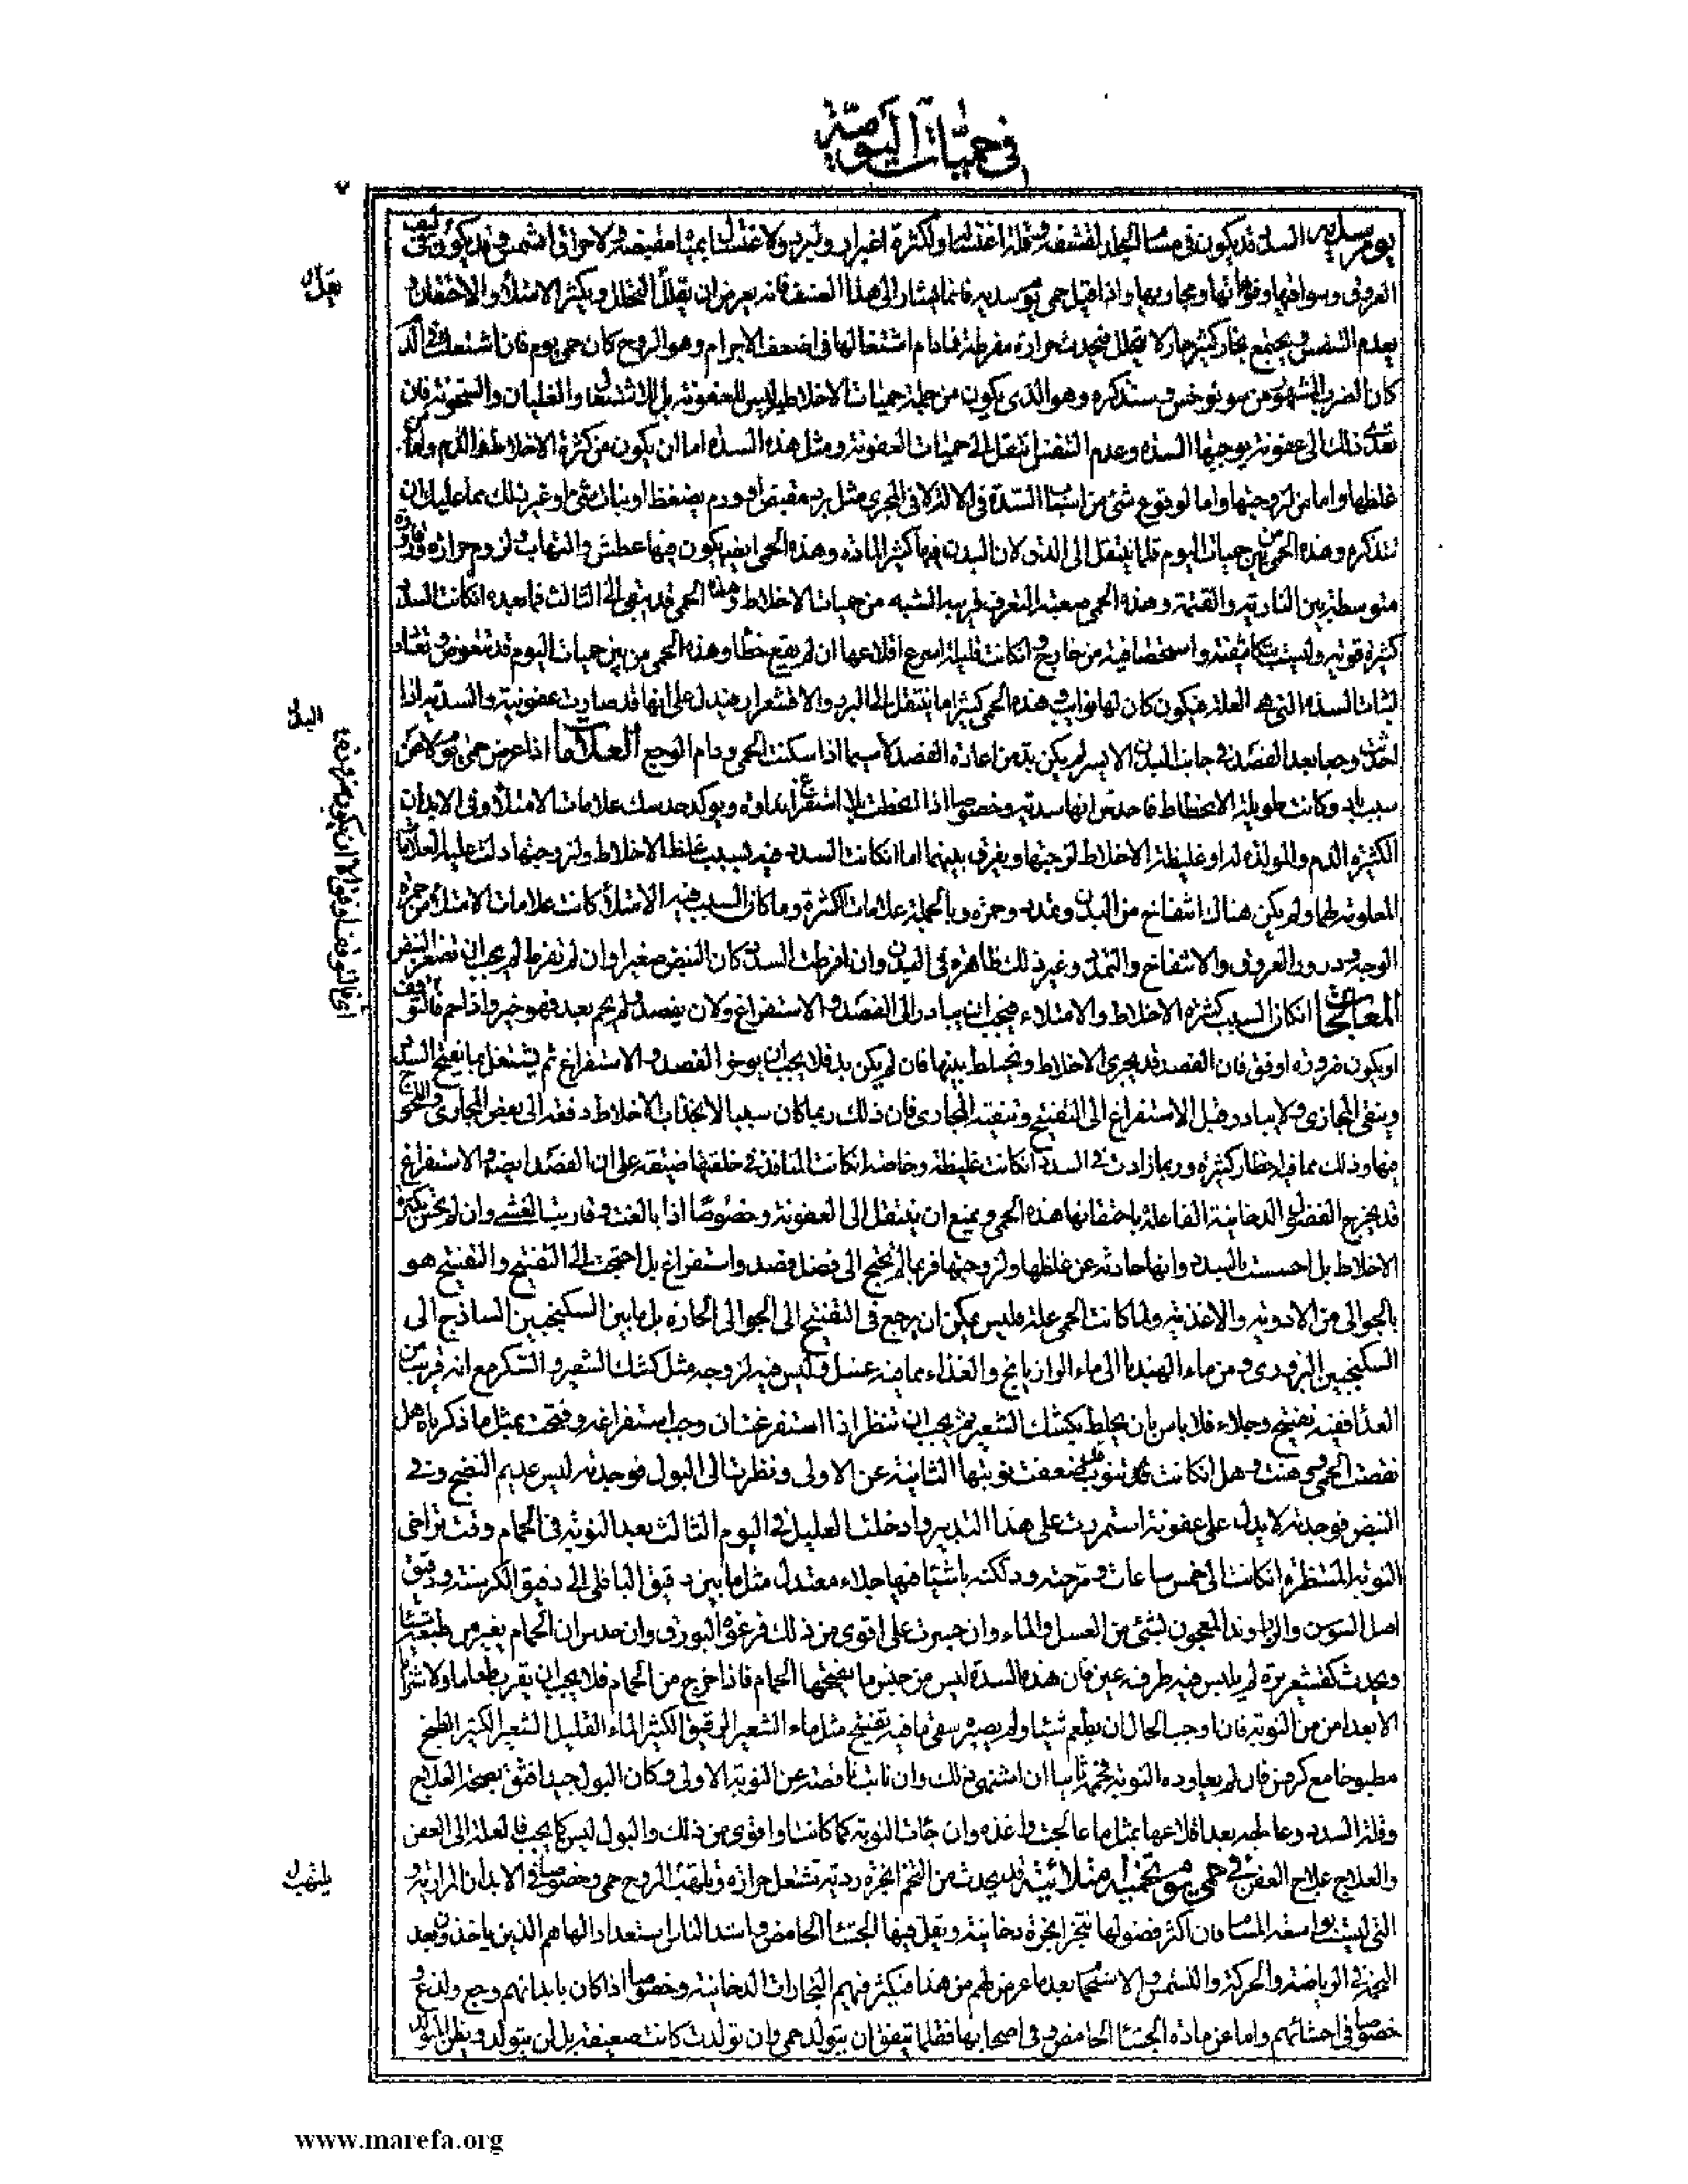 في حميات اليومية
٧
يوم سدية السدد قد يكون في مسام الجلد لقشفه وقلة اغتسال ولكثرة اغبرار ولبرد ولاغتسال بمياه مقبضة ولاحراق الشمس وقد يكون في ليف
العروق وسواقيها وفوهاتها ومجاريها واذا قيل حمى يوم سدية فانما يشار الى هذا الصنف فانه يعرض ان يقل التحلل ويكثر الامتلاء والاحتقان و
يعدم التنفس ويجتمع بخار كثير حار لا يتحلل فيحدث حرارة مفرطة فما دام اشتغالها في اضعف الاجرام وهو الروح كان حمى يوم فان اشتعلت في الدم
كان الضرب المشهور من سونوخس وستذكره وهو الذي يكون من جملة حميات الاخلاط ليس للعفونة بل للاشتعال والغليان والسخونة فان
تعدى ذلك الى عفونة يوجبها السدة وعدم التنفس انتقل الى حميات العفونة ومثل هذه السدة اما ان يكون من كثرة الاخلاط والدم واما من
غلظها واما من لزوجتها واما لوقوع شئ من اسباب السدة في الالة لا في المجرى مثل برد مقبض او ورم يضغط او نبات شئ او غير ذلك مما عليك ان
تتذكره وهذه الحمى من بين حميات اليوم قلما ينتقل الى الدق لان البدن فيها كثير المادة وهذه الحمى ايضا يكون فيها عطش والتهاب ولزوم حرارة وقارورة
متوسطة بين النارية والقتمة وهذه الحمى صعبة التعرف قريبة الشبه من حميات الاخلاط وهذه الحمى قد يبقى الى الثالث فما بعده ان كانت السدد
كثيرة قوية وليست بتكاثفة واستحصافية من خارج وان كانت قليلة اسرع اقلاعها ان لم يقع خطأ وهذه الحمى من بين حميات اليوم قد تنوب وتعاود
لثبات السدة التي هي العلة فيكون كان لها نوايب وهذه الحمى كثيرا ما ينتقل الى البرد والاقشعرار فيدل على انها قد صارت عفونية والسدية اذا
احدثت وجعا بعد الفصد في جانب البدن الايسر لم يكن بد من اعادة الفصد لا سيما اذا سكنت الحمى ودام الوجع العلامات اذا عرض حمى يوم لا عن
سبب باد وكانت طويلة الانحطاط فاحدس انها سدية وخصوصا اذا انحطت بلا استفراغ نداوة ويوكد حدسك علامات الامتلاء وفي الابدان
الكثيرة الدم والمولدة له او غليظة الاخلاط لزجتها ويفرق بينهما اما ان كانت السدد فيه لسبب غلظ الاخلاط ولزوجتها دلت عليه العلامات
المعلومة لهما ولم يكن هناك انتفاخ من البدن وتمدد وحمرة وبالجملة علامات الكثرة وما كان السبب فيه الامتلاء كانت علامات الامتلاء من حمرة
الوجه ودرور العروق والانتفاخ والتمدد وغير ذلك ظاهرة في البدن وان افرطت السدد كان النبض صغيرا وان لم تفرط لم يجب ان يصغر النبض
المعالجات ان كان السبب كثرة الاخلاط والامتلاء فيجب ان يبادر الى الفصد والاستفراغ ولان يفصد ولم يحم بعد فهو خير واذا حم فالتوقف
او يكون ضرورة اوفق فان الفصد قد يجرى الاخلاط ويخلط بينها فان لم يكن بد فلا يجب ان يوخر الفصد والاستفراغ ثم يشتغل بما يفتح السدد
وينقى المجاري ولا يبادر قبل الاستفراغ الى التفتيح وتنقية المجاري فان ذلك ربما كان سببا لانجذاب الاخلاط دفعة الى بعض المجاري واللحج
فيها وذلك مما فيه اخطار كثيرة وربما زادت في السدد ان كانت غليظة وخاصة ان كانت المنافذ في خلقتها ضيقة على ان الفصد ايضا والاستفراغ
قد يخرج الفضول الدخانية الفاعلة باحتقانها هذه الحمى ويمنع ان ينتقل الى العفونة وخصوصا اذا بالغت وقاربت الغشى وان لم يحس بكثرة
الاخلاط بل احسست بالسدد وانها حادثة عن غلظها ولزوجتها فربما لم تحتج الى فضل فصد واستفراغ بل احتجت الى التفتيح والتفتيح هو
بالجوالى من الادوية والاغذية ولما كانت الحمى علة فليس يمكن ان يرجع في التفتيح الى الجوالى الحارة بل ما بين السكنجبين الساذج الى
السكنجبين البزوري ومن ماء الهندبا الى ماء الرازيانج والغذاء مما فيه غسل وليس فيه لزوجة مثل كشك الشعير والسكر مع انه قريب من
الغذا ففيه تفتيح وجلاء فلا باس بان يخلط بكشك الشعير ثم يجب ان تنظر اذا استفرغت ان وجب استفراغ وفتحت بمثل ما ذكرناه هل
نقصت الحمى وهنت وهل ان كانت قد تنوب ضعفت نوبتها الثانية عن الاولى ونظرت الى البول فوجدته ليس عديم النضج وفي
النبض فوجدته لا يدل على عفونة استمررت على هذا التدبير وادخلت العليل في اليوم الثالث بعد النوبة في الحمام وقت تراخى
النوبة المنتظرة ان كانت الى خمس ساعات ومرخته ودلكته باشياء فيها جلاء معتدل مثل ما بين دقيق الباقلى الى دقيق الكرسنة ودقيق
اصل السوسن والزراوند المعجون بشئ من العسل والماء وان جسرت على اقوى من ذلك فرغوة البورق وان حدس ان الحمام يغير من طبيعته شيئا
ويحدث كقشعريرة لم يلبس فيه طرفة عين فان هذه السدة ليس من جنس ما يفتحها الحمام فاذا خرج من الحمام فلا يجب ان يقرب طعاما ولا شرابا
الا بعد امن من النوبة فان اوجب الحال ان يطعم شيئا ولم يصبر سقى ما فيه تفتيح مثل ماء الشعير الرقيق الكثير الماء القليل الشعير الكثير الطبخ
مطبوخا مع كرفس فان لم يعاوده النوبة فحمه ثانيا ان اشتهى ذلك وان نابت ناقصة عن النوبة الاولى وكان البول جيدا فثق بصحة العلاج
وقلة السدد وعالجه بعد اقلاعها بمثل ما عالجت واغذه وان جاءت النوبة كما كانت او اقوى من ذلك والبول ليس كما يجب فالعلة الى العفن
والعلاج علاج العفن في حمى يوم تخمية امتلائية قد يحدث من التخم ابخرة ردية تشتعل حرارة ويلهب الروح حمى وخصوصا في الابدان المرارية و
التي ليست بواسعة المسام فان اكثر فضولها تتبخر ابخرة دخانية ويقل فيها الجشاء الحامض واشد الناس استعدادا لها هم الذين ياخذون بعد
التخم في الرياضة والحركة والتشمس والاستحمام بعد ما عرض لهم من هذا فيكثر فيهم البخارات الدخانية وخصوصا اذا كان بابدانهم وجع ولذع و
خصوصا في احشائهم واما عن مادة الجشاء الحامض وفي اصحابها فقلما يتفق ان يتولد حمى وان تولدت كانت ضعيفة بل لن يتولد
يقلل
البدن
يلتهب
www.marefa.org